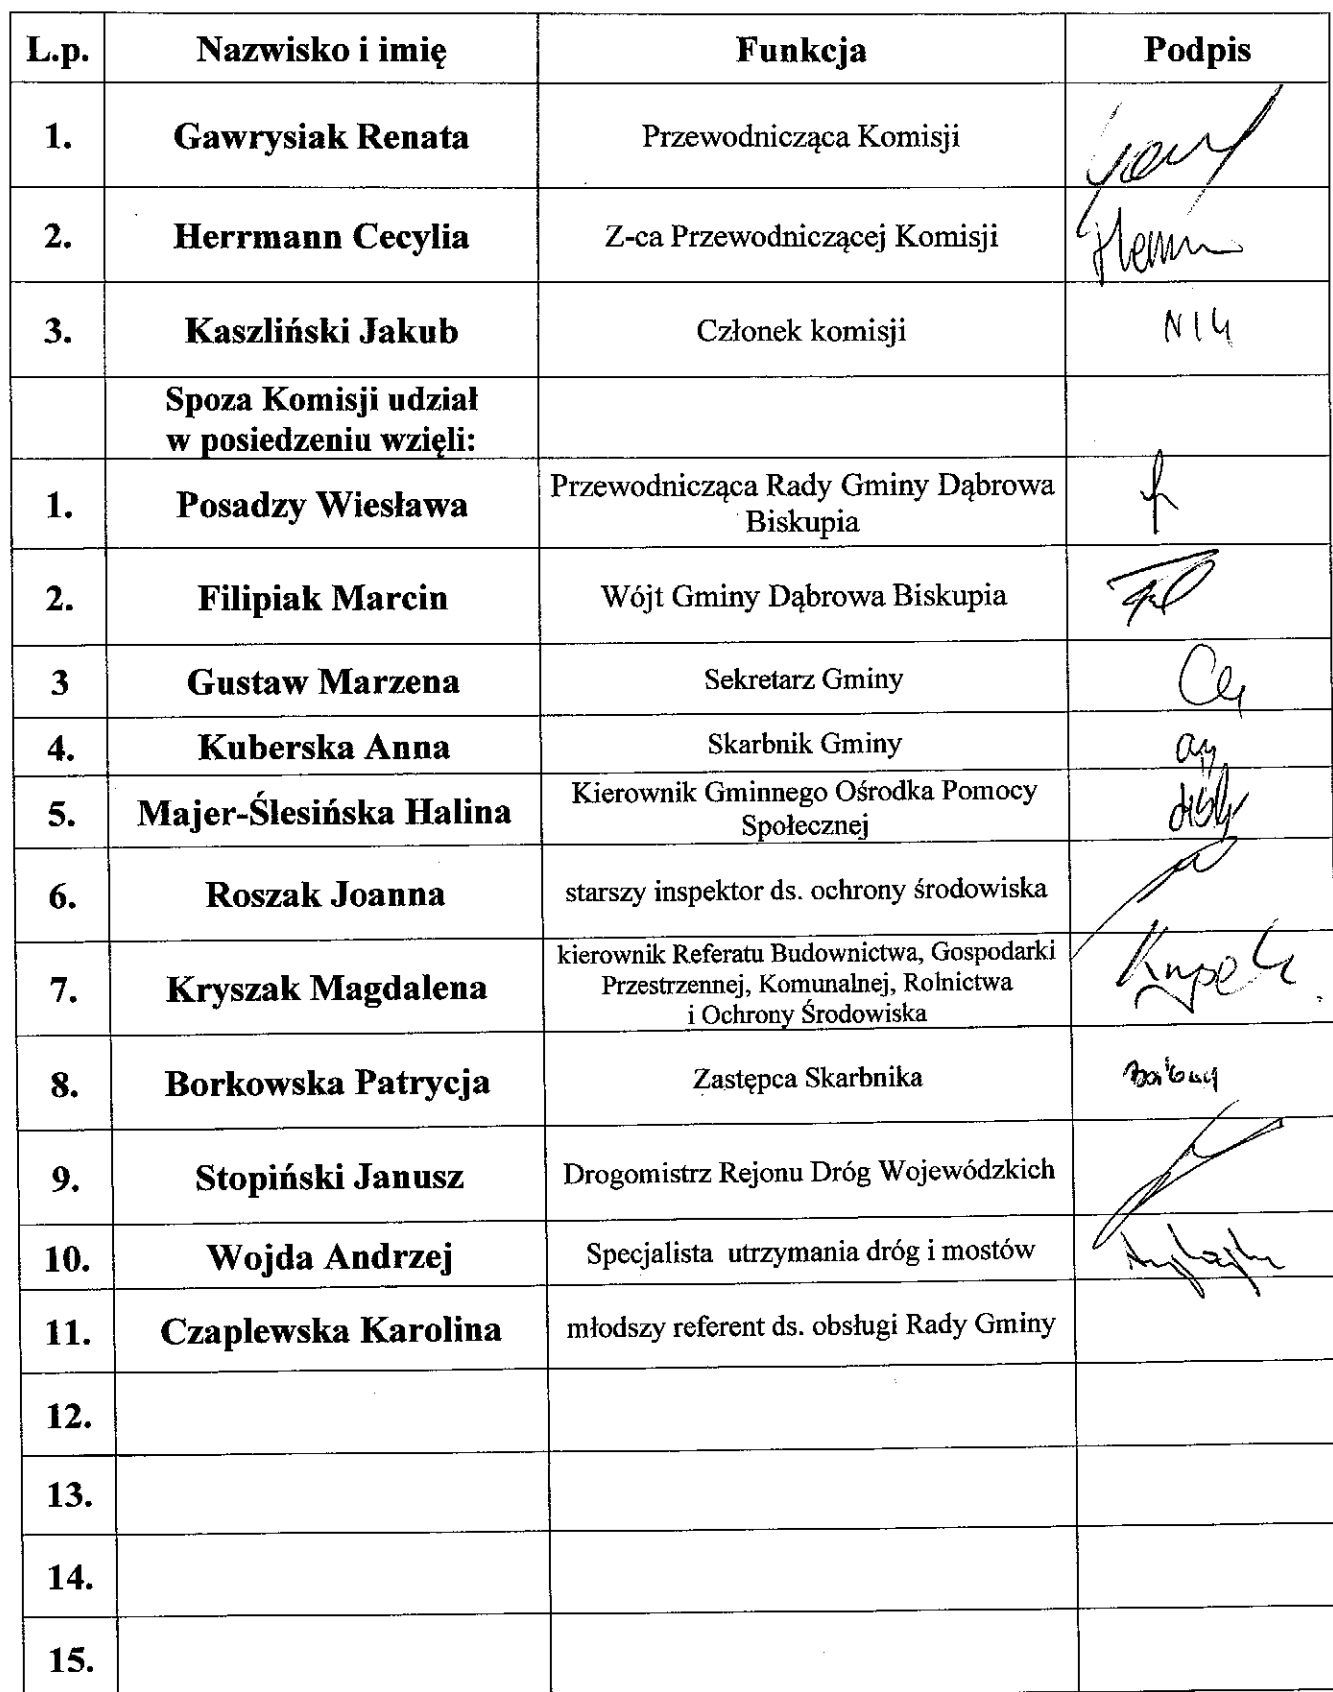 L.p. Nazwisko i imię Funkcja Podpis
1. Gawrysiak Renata Przewodnicząca Komisji
2. Herrmann Cecylia Z-ca Przewodniczącej Komisji
3. Kaszliński Jakub Członek komisji
Spoza Komisji udział
w posiedzeniu wzięli:
1. Posadzy Wiesława Przewodnicząca Rady Gminy Dąbrowa
Biskupia
2. Filipiak Marcin Wójt Gminy Dąbrowa Biskupia
3 Gustaw Marzena Sekretarz Gminy
4. Kuberska Anna Skarbnik Gminy
5. Majer-Ślesińska Halina Kierownik Gminnego Ośrodka Pomocy
Społecznej
6. Roszak Joanna starszy inspektor ds. ochrony środowiska
7. Kryszak Magdalena kierownik Referatu Budownictwa, Gospodarki
Przestrzennej, Komunalnej, Rolnictwa
i Ochrony Środowiska
8. Borkowska Patrycja Zastępca Skarbnika
9. Stopiński Janusz Drogomistrz Rejonu Dróg Wojewódzkich
10. Wojda Andrzej Specjalista utrzymania dróg i mostów
11. Czaplewska Karolina młodszy referent ds. obsługi Rady Gminy
12.
13.
14.
15.